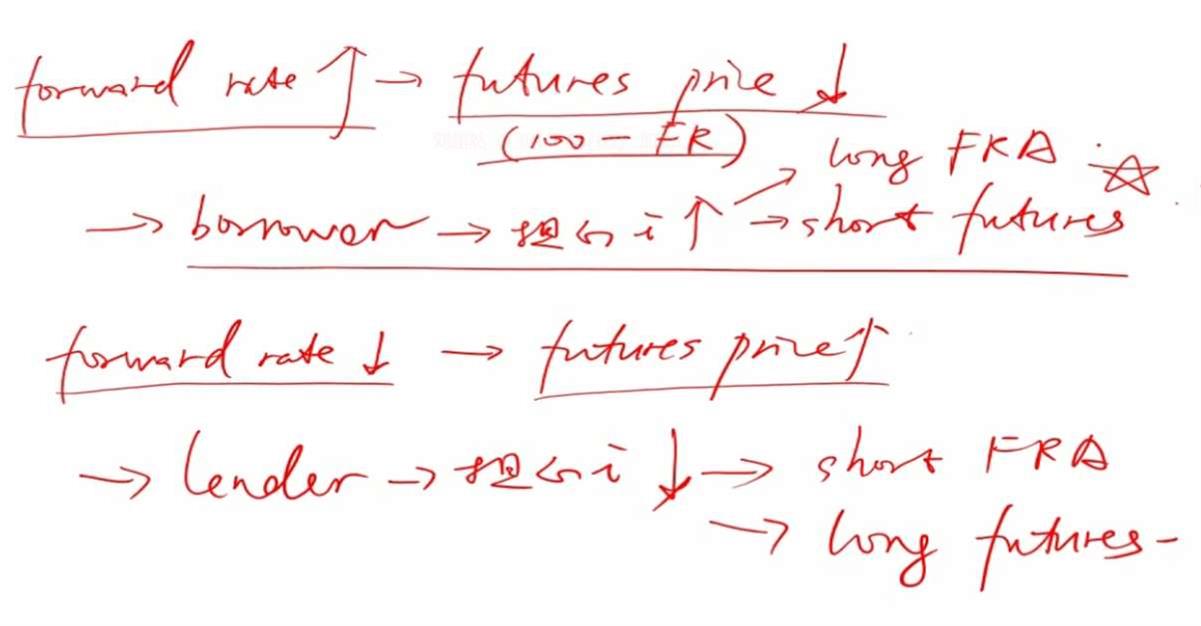 forward rate ↑ → futures price ↓
(100 - FR)
→ long FRA ☆
→ borrower → 担心 i ↑ → short futures
forward rate ↓ → futures price ↑
→ lender → 担心 i ↓ → short FRA
→ long futures